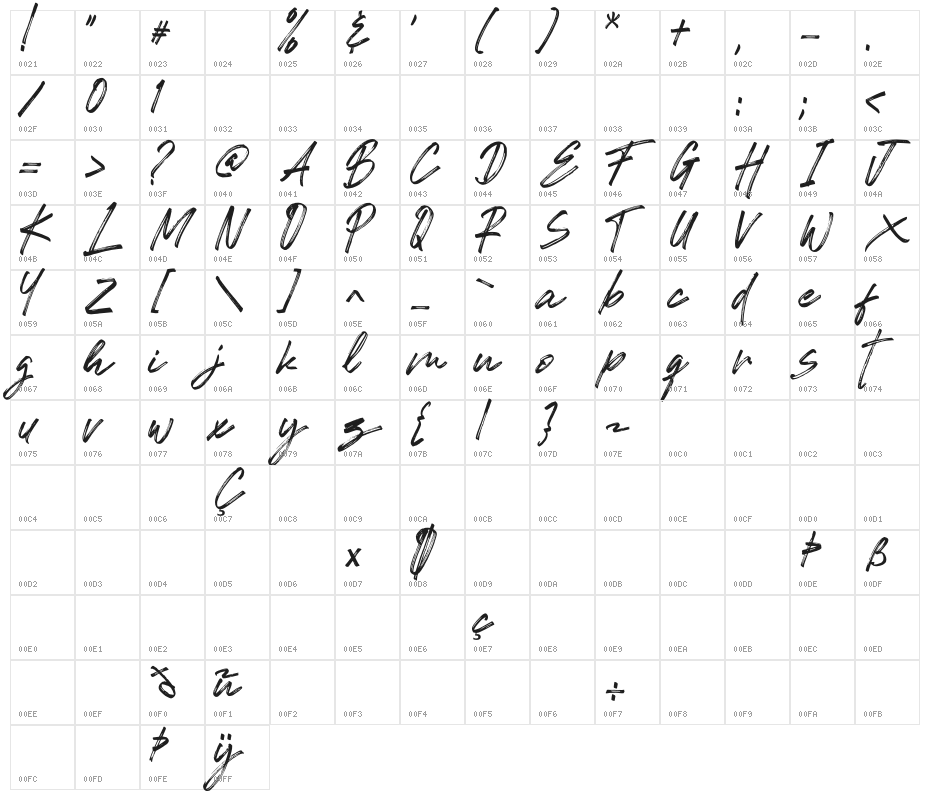 ! " # % & ' ( ) * + , - .
0021 0022 0023 0024 0025 0026 0027 0028 0029 002A 002B 002C 002D 002E
/ 0 1 : ; <
002F 0030 0031 0032 0033 0034 0035 0036 0037 0038 0039 003A 003B 003C
= > ? @ A B C D E F G H I J
003D 003E 003F 0040 0041 0042 0043 0044 0045 0046 0047 0048 0049 004A
K L M N O P Q R S T U V W X
004B 004C 004D 004E 004F 0050 0051 0052 0053 0054 0055 0056 0057 0058
Y Z [ \ ] ^ _ ` a b c d e f
0059 005A 005B 005C 005D 005E 005F 0060 0061 0062 0063 0064 0065 0066
g h i j k l m n o p q r s t
0067 0068 0069 006A 006B 006C 006D 006E 006F 0070 0071 0072 0073 0074
u v w x y z { | } ~
0075 0076 0077 0078 0079 007A 007B 007C 007D 007E 00C0 00C1 00C2 00C3
Ç
00C4 00C5 00C6 00C7 00C8 00C9 00CA 00CB 00CC 00CD 00CE 00CF 00D0 00D1
× Ø Þ ß
00D2 00D3 00D4 00D5 00D6 00D7 00D8 00D9 00DA 00DB 00DC 00DD 00DE 00DF
ç
00E0 00E1 00E2 00E3 00E4 00E5 00E6 00E7 00E8 00E9 00EA 00EB 00EC 00ED
ð ñ ÷
00EE 00EF 00F0 00F1 00F2 00F3 00F4 00F5 00F6 00F7 00F8 00F9 00FA 00FB
þ ÿ
00FC 00FD 00FE 00FF